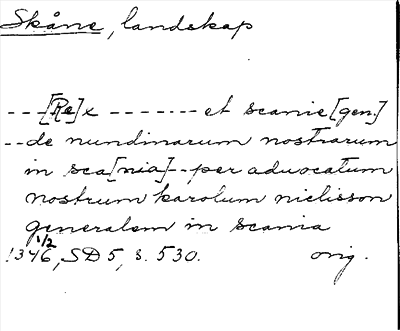 Skåne, landskap
---[Re]x ------- et scanie [gen.]
--de nundinarum nostrarum
in sca[nia]--per aduocatum
nostrum karolum niclisson
generalem in scania
1346 1/2, SD 5, s. 530. orig.